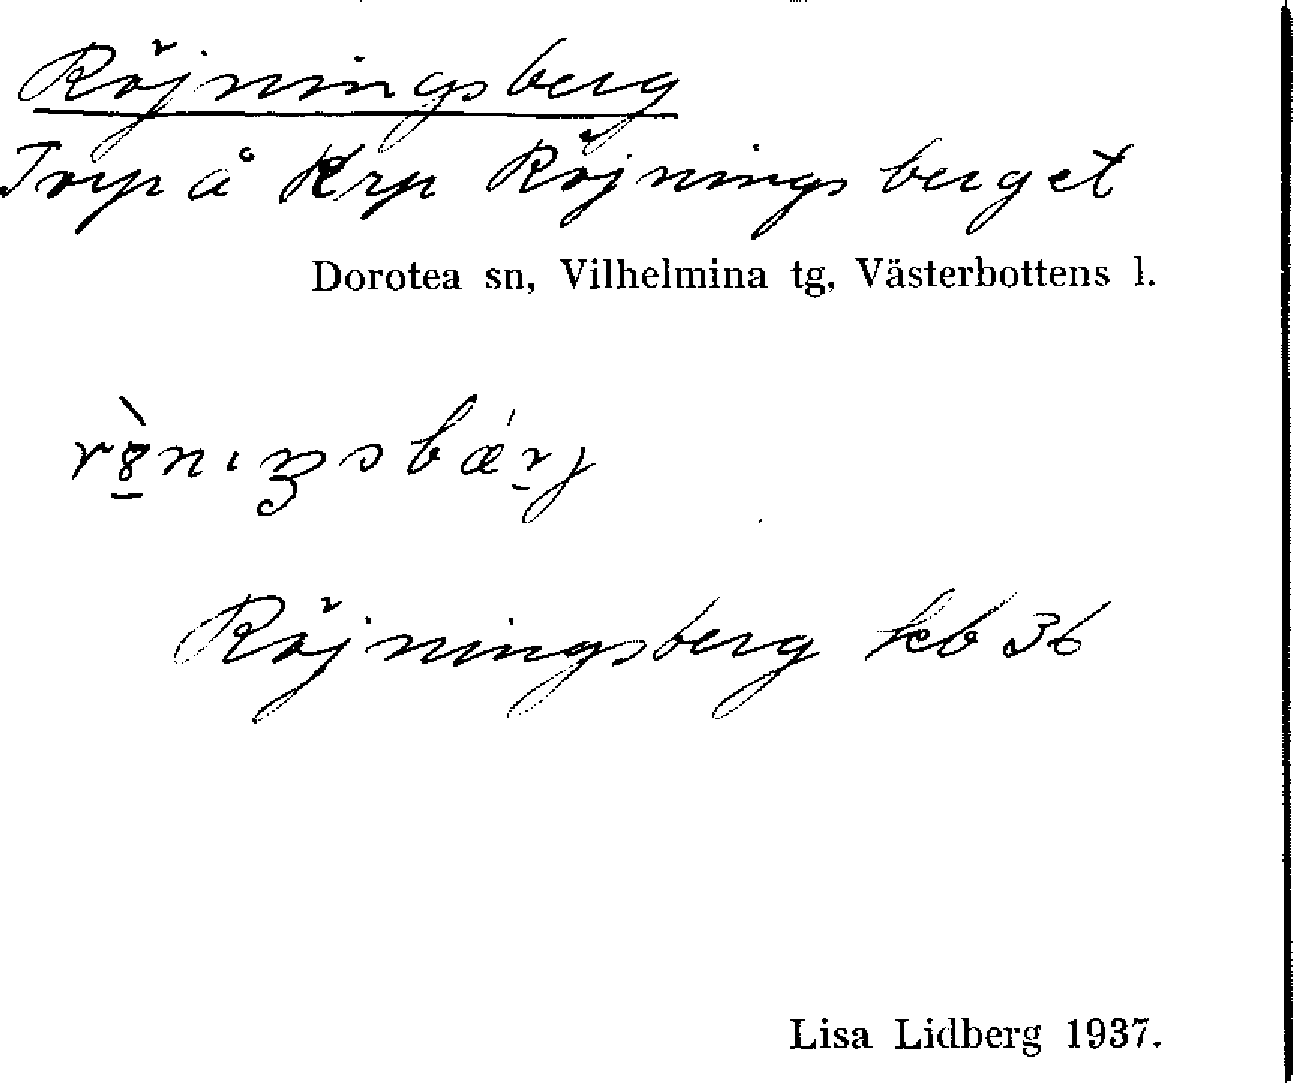 Röjningsberg
Torp å Krp Röjningsberget
Dorotea sn, Vilhelmina tg, Västerbottens l.
Röjningsberg kb 36
Lisa Lidberg 1937.